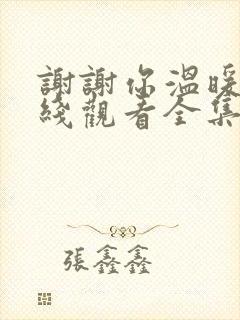 謝謝你溫暖
綫觀看全集
張鑫鑫